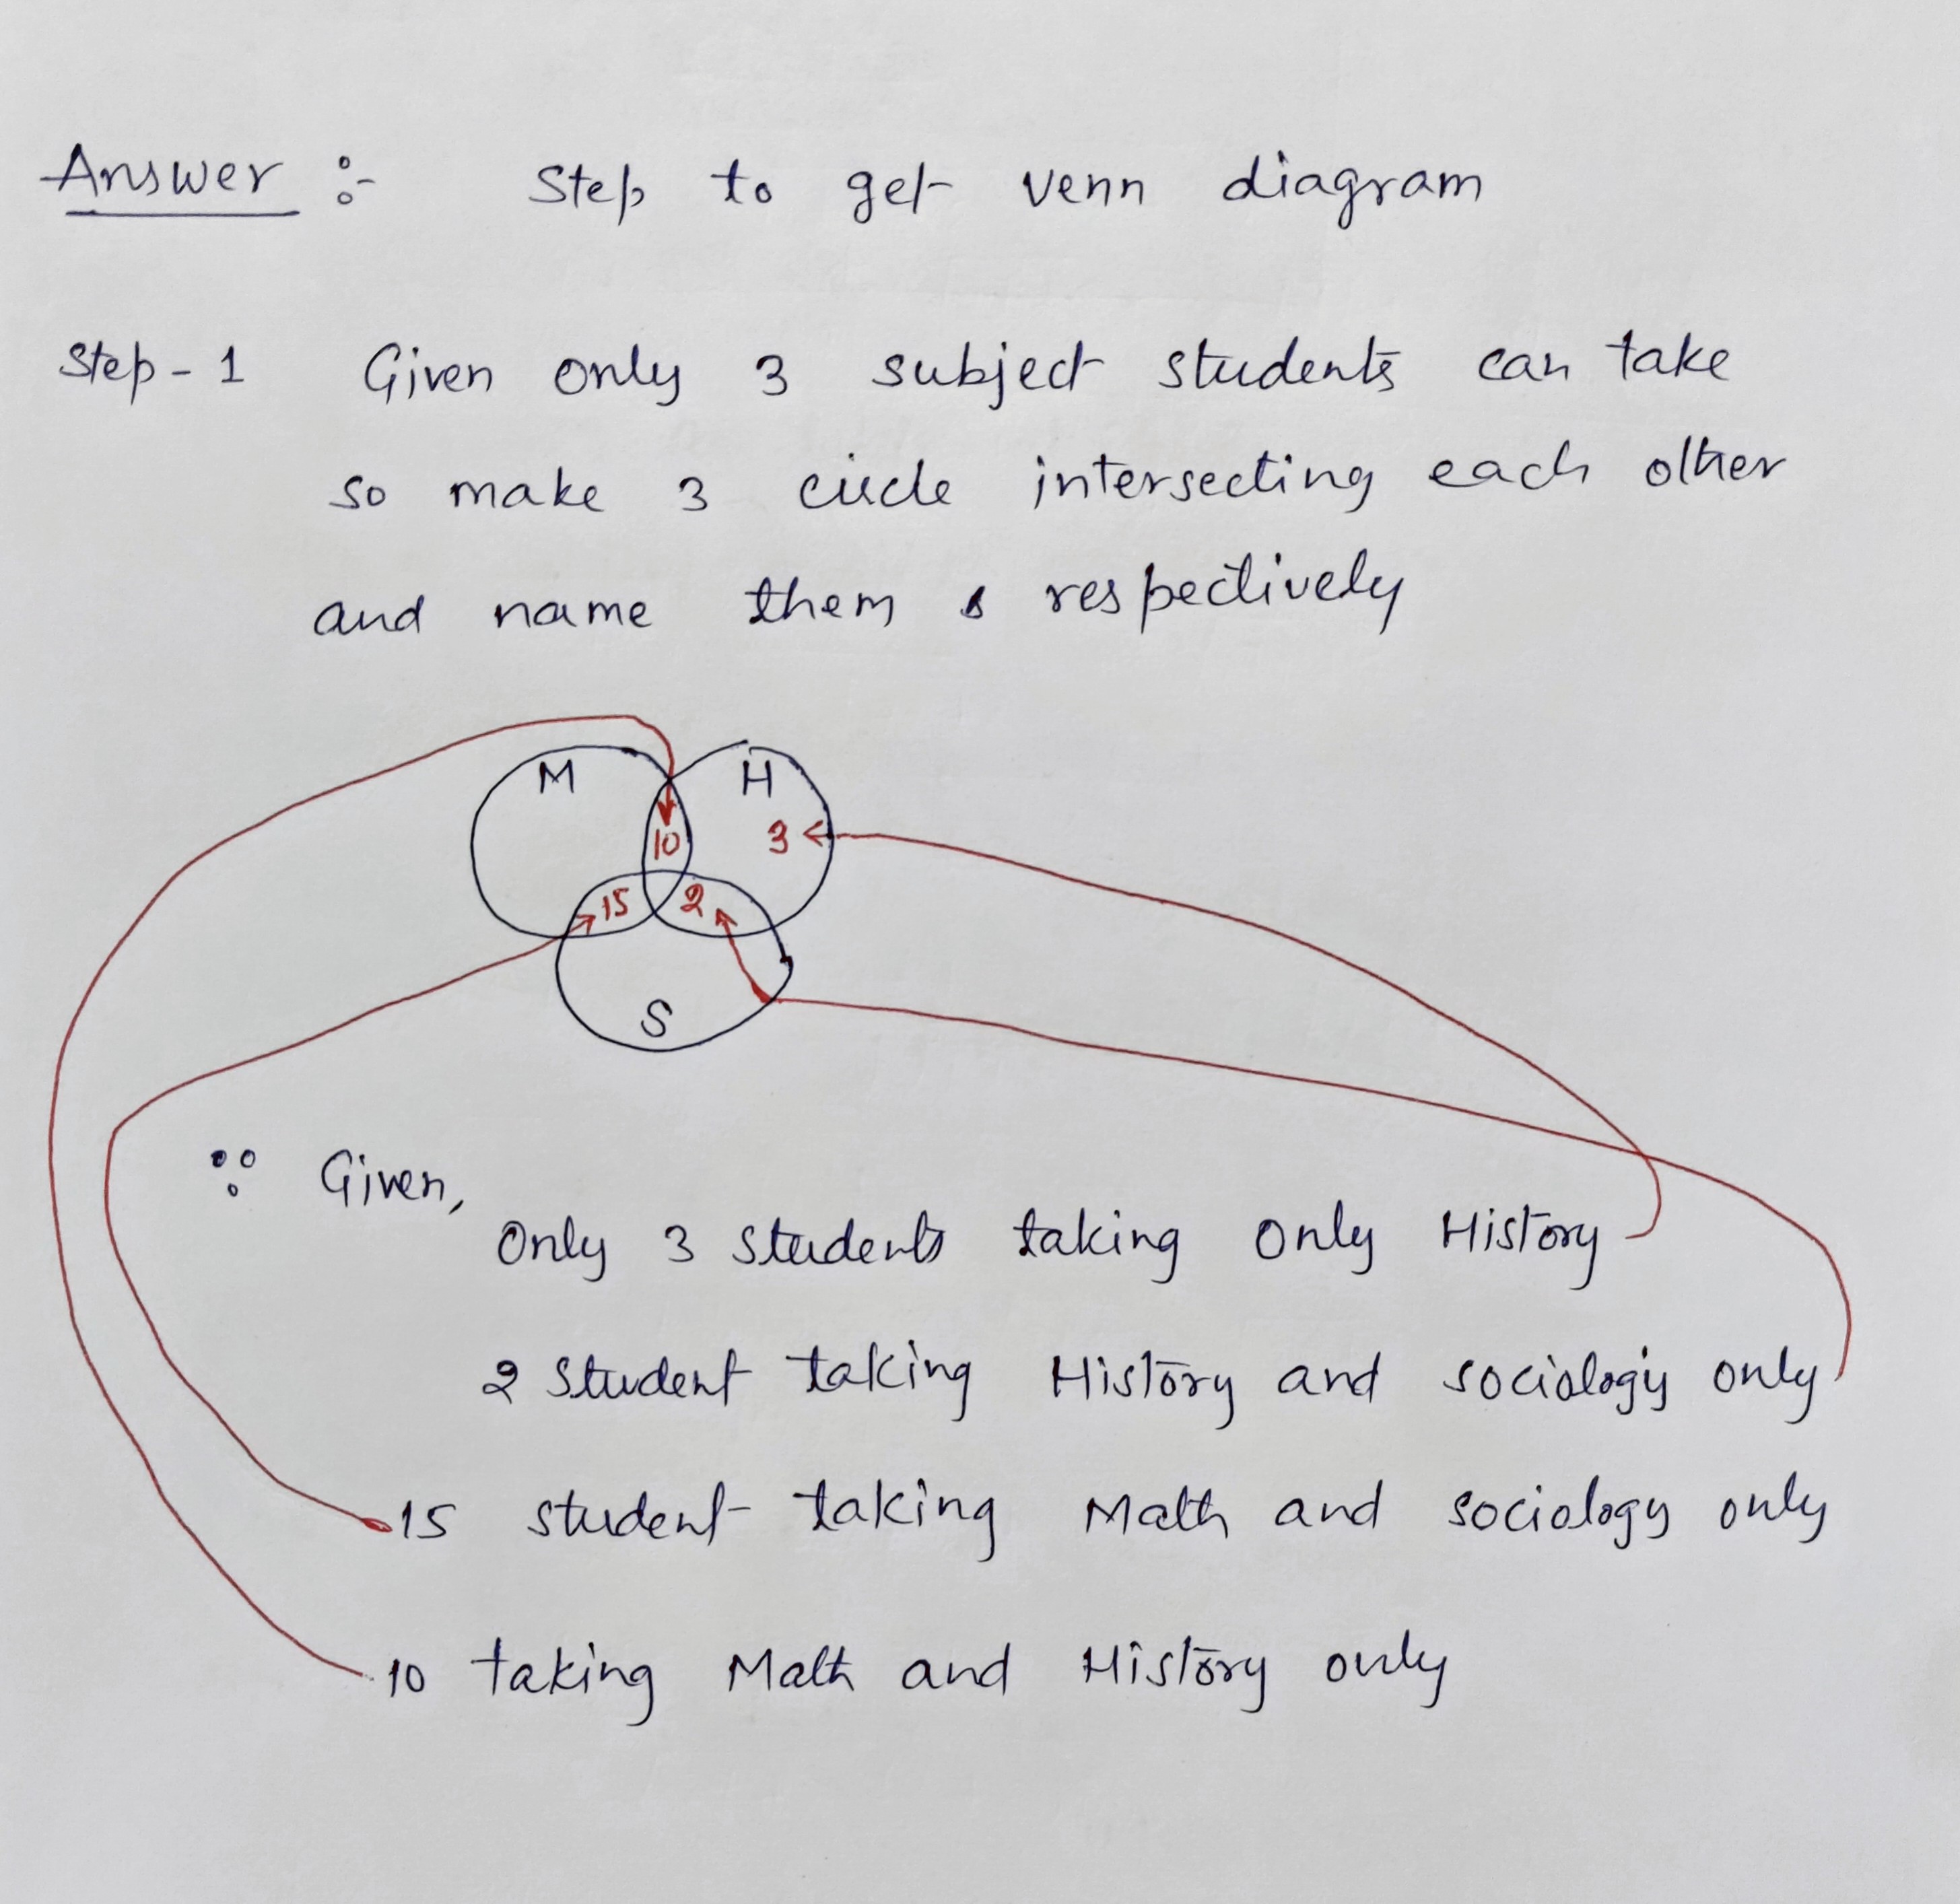 Answer :- Step to get venn diagram
Step - 1 Given only 3 subject students can take
so make 3 circle intersecting each other
and name them respectively
M H
10 3
15 2
S
∵ Given,
Only 3 students taking only History
2 student taking History and sociology only
15 student taking Math and sociology only
10 taking Math and History only